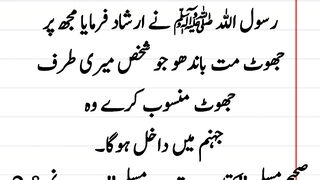 رسول اللہ ﷺ نے ارشاد فرمایا مجھ پر
جھوٹ مت باندھو جو شخص میری طرف
جھوٹ منسوب کرے وہ
جہنم میں داخل ہوگا۔
صحیح مسلم